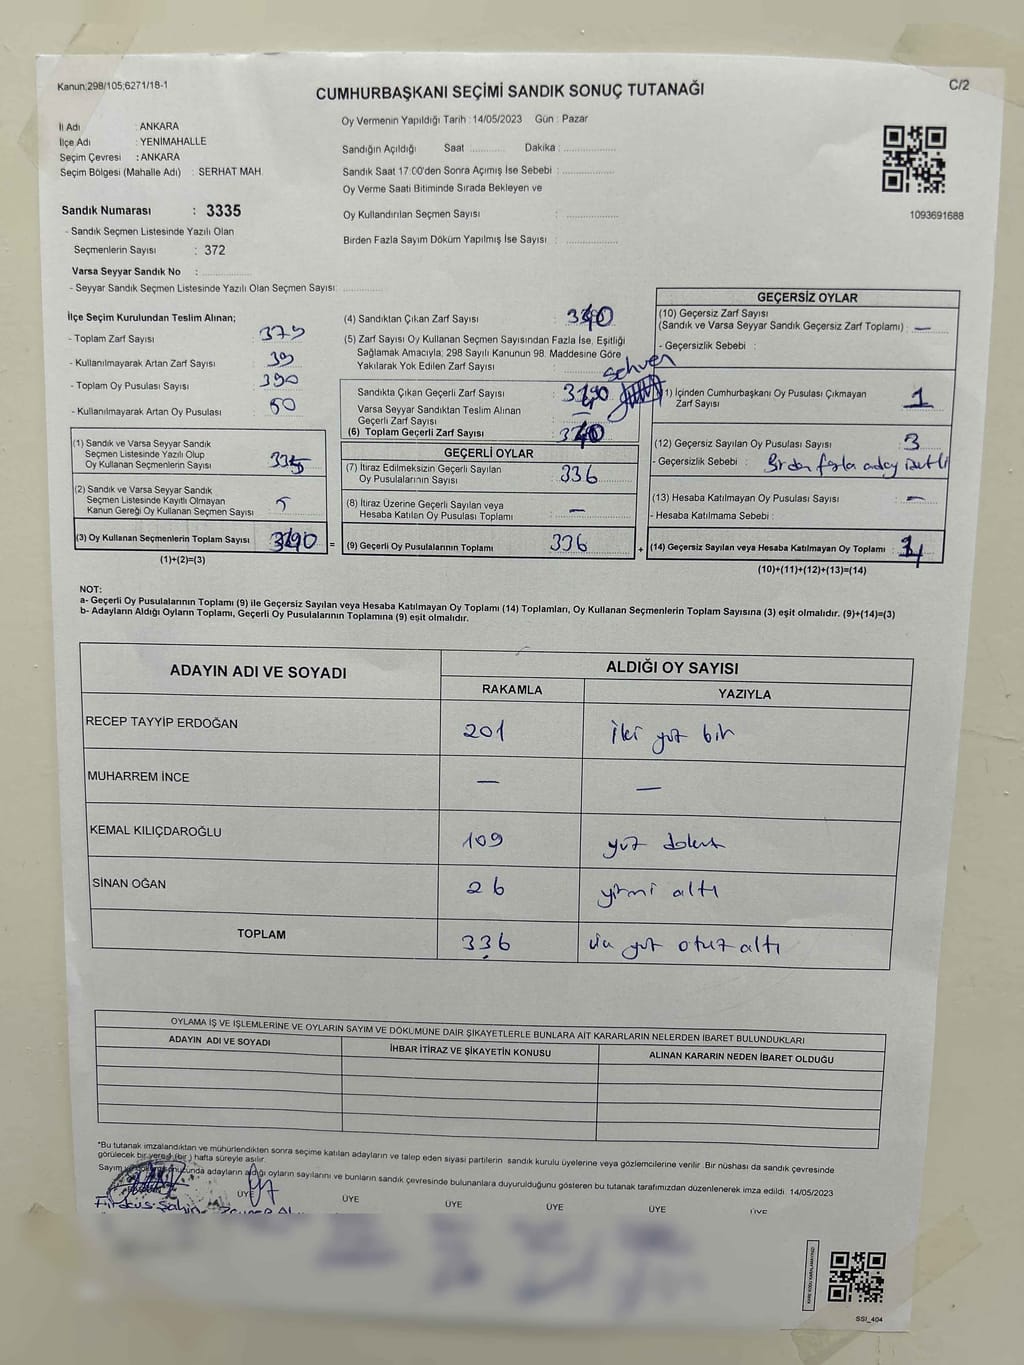 Kanun;298/105;6271/18-1
C/2
CUMHURBAŞKANI SEÇİMİ SANDIK SONUÇ TUTANAĞI
İl Adı : ANKARA
İlçe Adı : YENİMAHALLE
Seçim Çevresi : ANKARA
Seçim Bölgesi (Mahalle Adı) : SERHAT MAH.
Oy Vermenin Yapıldığı Tarih : 14/05/2023 Gün : Pazar
Sandığın Açıldığı Saat ............ Dakika : ..................
Sandık Saat 17:00'den Sonra Açımış İse Sebebi : ..................
Oy Verme Saati Bitiminde Sırada Bekleyen ve
Oy Kullandırılan Seçmen Sayısı : ..................
Birden Fazla Sayım Döküm Yapılmış İse Sayısı : ..................
1093691688
Sandık Numarası : 3335
- Sandık Seçmen Listesinde Yazılı Olan
Seçmenlerin Sayısı : 372
Varsa Seyyar Sandık No : ..................
- Seyyar Sandık Seçmen Listesinde Yazılı Olan Seçmen Sayısı: ..............
İlçe Seçim Kurulundan Teslim Alınan;
- Toplam Zarf Sayısı : 379
- Kullanılmayarak Artan Zarf Sayısı : 39
- Toplam Oy Pusulası Sayısı : 390
- Kullanılmayarak Artan Oy Pusulası : 50
(1) Sandık ve Varsa Seyyar Sandık
Seçmen Listesinde Yazılı Olup
Oy Kullanan Seçmenlerin Sayısı : 335
(2) Sandık ve Varsa Seyyar Sandık
Seçmen Listesinde Kayıtlı Olmayan
Kanun Gereği Oy Kullanan Seçmen Sayısı : 5
(3) Oy Kullanan Seçmenlerin Toplam Sayısı
(1)+(2)=(3)
=
(4) Sandıktan Çıkan Zarf Sayısı :
(5) Zarf Sayısı Oy Kullanan Seçmen Sayısından Fazla İse, Eşitliği
Sağlamak Amacıyla; 298 Sayılı Kanunun 98. Maddesine Göre
Yakılarak Yok Edilen Zarf Sayısı :
sehven
Sandıkta Çıkan Geçerli Zarf Sayısı :
Varsa Seyyar Sandıktan Teslim Alınan
Geçerli Zarf Sayısı : —
(6) Toplam Geçerli Zarf Sayısı :
GEÇERLİ OYLAR
(7) İtiraz Edilmeksizin Geçerli Sayılan
Oy Pusulalarının Sayısı : 336
(8) İtiraz Üzerine Geçerli Sayılan veya
Hesaba Katılan Oy Pusulası Toplamı : —
(9) Geçerli Oy Pusulalarının Toplamı : 336
+
GEÇERSİZ OYLAR
(10) Geçersiz Zarf Sayısı
(Sandık ve Varsa Seyyar Sandık Geçersiz Zarf Toplamı) : —
- Geçersizlik Sebebi :
1) İçinden Cumhurbaşkanı Oy Pusulası Çıkmayan
Zarf Sayısı : 1
(12) Geçersiz Sayılan Oy Pusulası Sayısı : 3
- Geçersizlik Sebebi : Birden fazla aday
(13) Hesaba Katılmayan Oy Pusulası Sayısı : —
- Hesaba Katılmama Sebebi :
(14) Geçersiz Sayılan veya Hesaba Katılmayan Oy Toplamı :
(10)+(11)+(12)+(13)=(14)
NOT:
a- Geçerli Oy Pusulalarının Toplamı (9) ile Geçersiz Sayılan veya Hesaba Katılmayan Oy Toplamı (14) Toplamları, Oy Kullanan Seçmenlerin Toplam Sayısına (3) eşit olmalıdır. (9)+(14)=(3)
b- Adayların Aldığı Oyların Toplamı, Geçerli Oy Pusulalarının Toplamına (9) eşit olmalıdır.
ADAYIN ADI VE SOYADI
ALDIĞI OY SAYISI
RAKAMLA YAZIYLA
RECEP TAYYİP ERDOĞAN 201 iki yüz bir
MUHARREM İNCE — —
KEMAL KILIÇDAROĞLU 109 yüz dokuz
SİNAN OĞAN 26 yirmi altı
TOPLAM 336 üç yüz otuz altı
OYLAMA İŞ VE İŞLEMLERİNE VE OYLARIN SAYIM VE DÖKÜMÜNE DAİR ŞİKAYETLERLE BUNLARA AİT KARARLARIN NELERDEN İBARET BULUNDUKLARI
ADAYIN ADI VE SOYADI İHBAR İTİRAZ VE ŞİKAYETİN KONUSU ALINAN KARARIN NEDEN İBARET OLDUĞU
*Bu tutanak imzalandıktan ve mühürlendikten sonra seçime katılan adayların ve talep eden siyasi partilerin sandık kurulu üyelerine veya gözlemcilerine verilir. Bir nüshası da sandık çevresinde
görülecek bir yere 1 (bir) hafta süreyle asılır.
Sayım adayların aldığı oyların sayılarını ve bunların sandık çevresinde bulunanlara duyurulduğunu gösteren bu tutanak tarafımızdan düzenlenerek imza edildi. 14/05/2023
ÜYE ÜYE ÜYE ÜYE ÜYE ÜYE
SSI_404